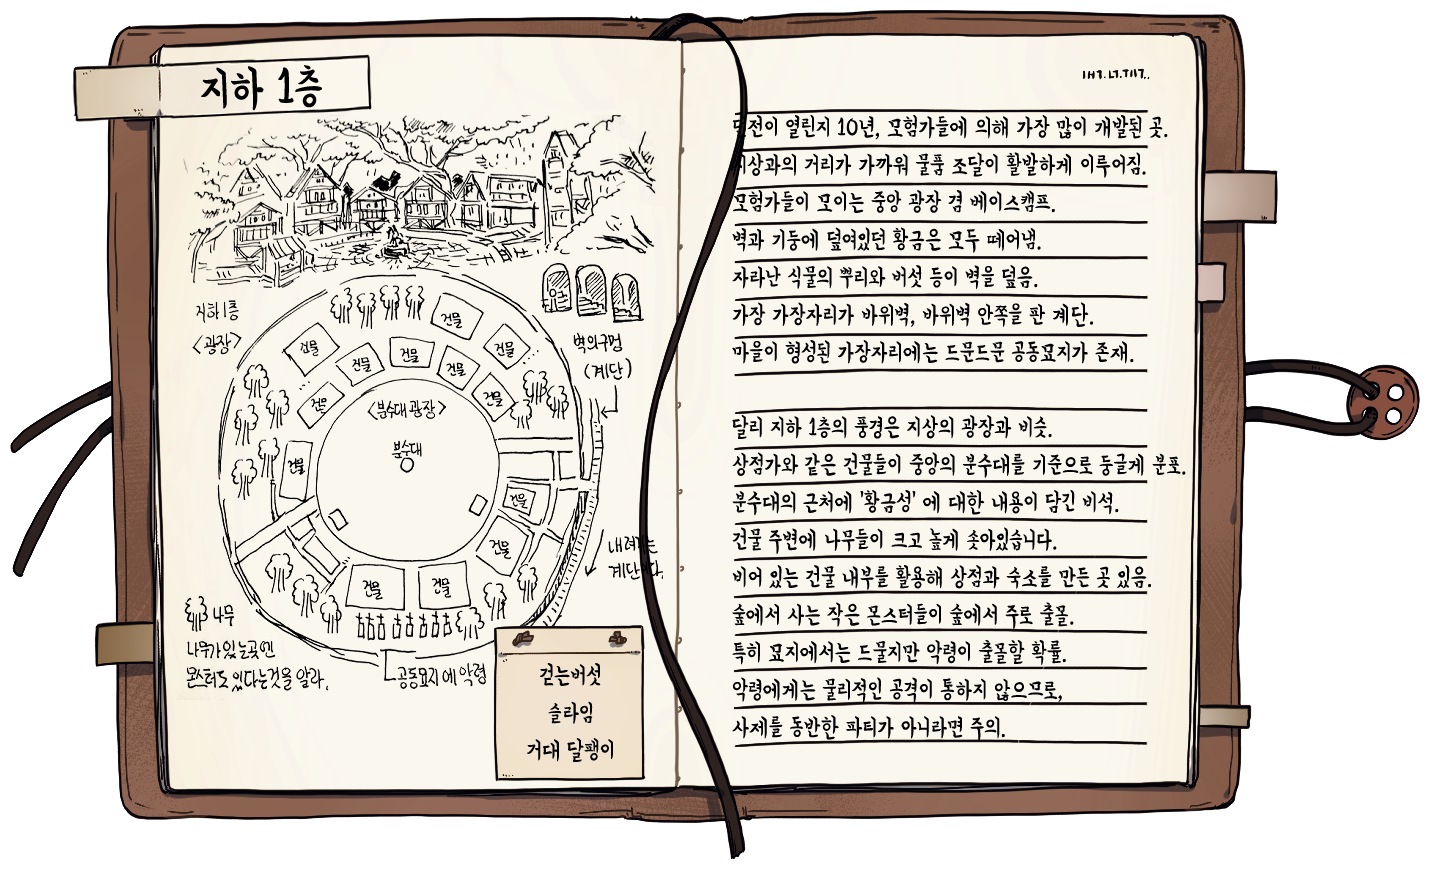 지하 1층
지하1층
<광장>
건물
건물
건물
건물
건물
건물
건물
건물
건물
<분수대 광장>
분수대
건물
건물
건물
건물
건물
벽의구멍
(계단)
나무
나무가 있는곳엔
몬스터도 있다는것을 알라.
공동묘지에 악령
걷는버섯
슬라임
거대 달팽이
열린지 10년, 모험가들에 의해 가장 많이 개발된 곳.
거리가 가까워 물품 조달이 활발하게 이루어짐.
모험가들이 모이는 중앙 광장 겸 베이스캠프.
벽과 기둥에 덮여있던 황금은 모두 떼어냄.
자라난 식물의 뿌리와 버섯 등이 벽을 덮음.
가장 가장자리가 바위벽, 바위벽 안쪽을 판 계단.
마을이 형성된 가장자리에는 드문드문 공동묘지가 존재.
달리 지하 1층의 풍경은 지상의 광장과 비슷.
상점가와 같은 건물들이 중앙의 분수대를 기준으로 둥글게 분포.
분수대의 근처에 '황금성' 에 대한 내용이 담긴 비석.
건물 주변에 나무들이 크고 높게 솟아있습니다.
비어 있는 건물 내부를 활용해 상점과 숙소를 만든 곳 있음.
숲에서 사는 작은 몬스터들이 숲에서 주로 출몰.
특히 묘지에서는 드물지만 악령이 출몰할 확률.
악령에게는 물리적인 공격이 통하지 않으므로,
사제를 동반한 파티가 아니라면 주의.